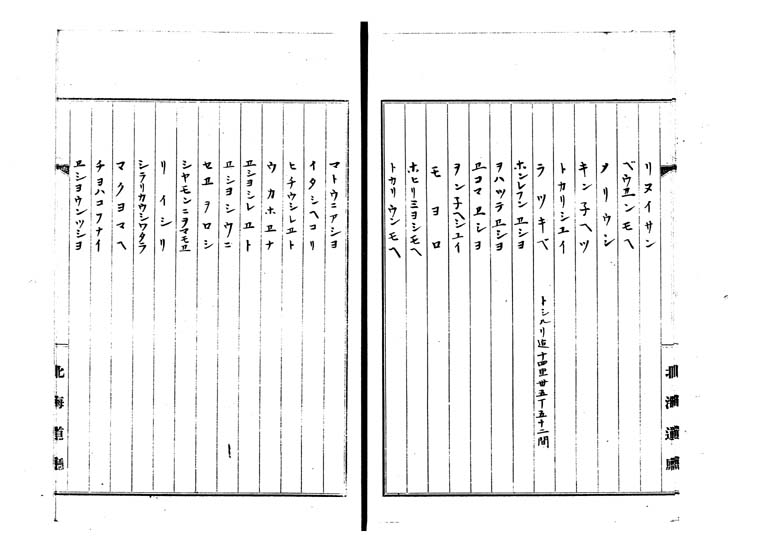 リヌイサン
ベウヱンモヘ
メリウシ
キン子ヘツ
トカリシユイ
ラツキベ トシルリ迠十四里卅五丁五十二間
ホンレフンヱシヨ
ヲハツテヱシヨ
ヱコマヱシヨ
ヲン子ヘシユイ
モヨロ
ホヒリミヨシモヘ
トカリウシモヘ
北海道廳
マトウニアシヨ
イタシヘコリ
ヒチウシレヱト
ウカホヱナ
ヱシヨシレヱト
ヱシヨシウニ
セヱヲロシ
シヤモンニヲマモヱ
リイシリ
シラリカウシワタラ
マクヨマヘ
チヨハコフナイ
ヱシヨウンツシヨ
北海道廳